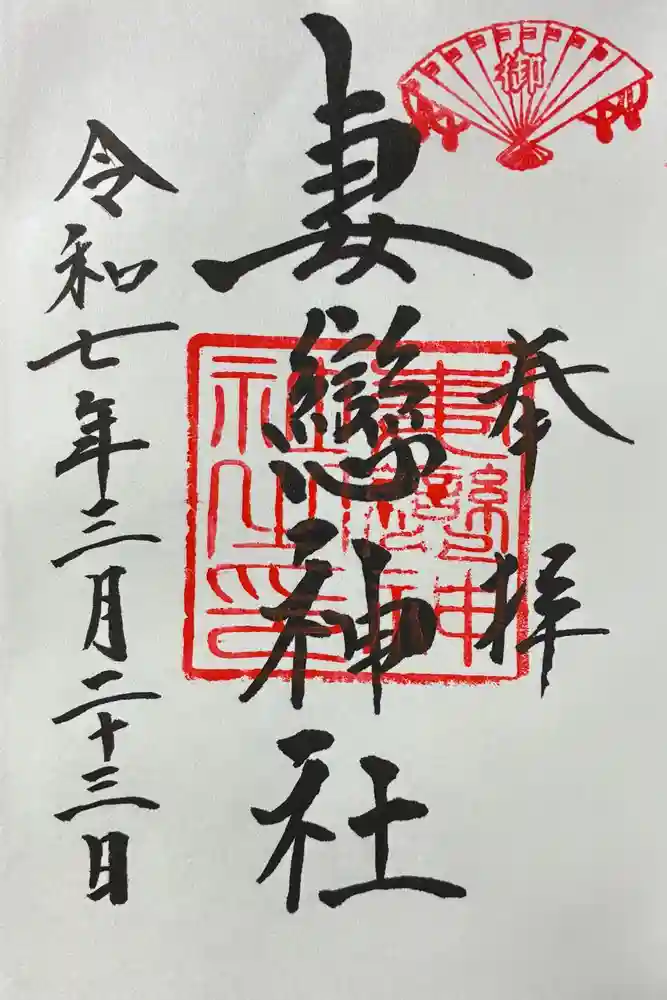 奉拝
妻戀神社
令和七年三月二十三日
御
妻戀神
社之印